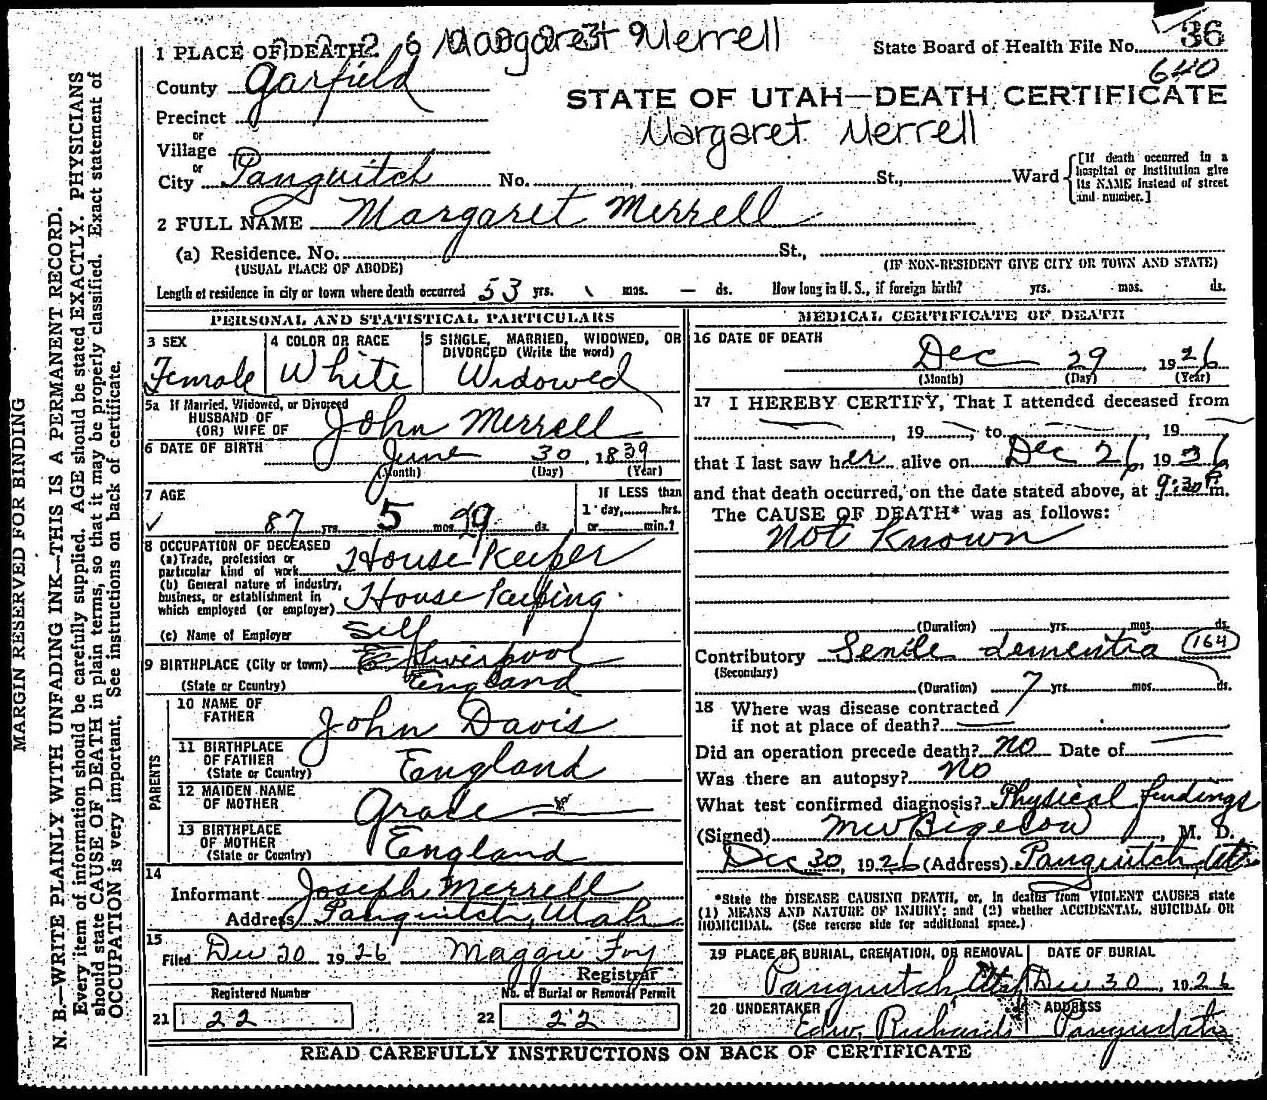 Margaret Merrell
1 PLACE OF DEATH
State Board of Health File No. 36
640
County Garfield
STATE OF UTAH—DEATH CERTIFICATE
Precinct
Margaret Merrell
or
Village
or
City Panguitch No. St., Ward
[If death occurred in a hospital or institution give its NAME instead of street and number.]
2 FULL NAME Margaret Merrell
(a) Residence. No. St.,
(USUAL PLACE OF ABODE) (IF NON-RESIDENT GIVE CITY OR TOWN AND STATE)
Length of residence in city or town where death occurred 53 yrs. \ mos. — ds. How long in U. S., if foreign birth? yrs. mos. ds.
PERSONAL AND STATISTICAL PARTICULARS
3 SEX 4 COLOR OR RACE 5 SINGLE, MARRIED, WIDOWED, OR
DIVORCED (Write the word)
Female White Widowed
5a If Married, Widowed, or Divorced
HUSBAND OF
(OR) WIFE OF John Merrell
6 DATE OF BIRTH June 30, 1839
(Month) (Day) (Year)
7 AGE If LESS than
1 day, hrs.
87 yrs. 5 mos. 29 ds. or min.?
8 OCCUPATION OF DECEASED
(a) Trade, profession or
particular kind of work House Keeper
(b) General nature of industry,
business, or establishment in
which employed (or employer) House Keeping
(c) Name of Employer Self
9 BIRTHPLACE (City or town) Liverpool
(State or Country) England
PARENTS
10 NAME OF
FATHER John Davis
11 BIRTHPLACE
OF FATHER
(State or Country) England
12 MAIDEN NAME
OF MOTHER Grace
13 BIRTHPLACE
OF MOTHER
(State or Country) England
14
Informant Joseph Merrell
Address Panguitch, Utah
15
Filed Dec 30 1926 Maggie Foy
Registrar
Registered Number No. of Burial or Removal Permit
21 22 22 22
MEDICAL CERTIFICATE OF DEATH
16 DATE OF DEATH
Dec 29, 1926
(Month) (Day) (Year)
17 I HEREBY CERTIFY, That I attended deceased from
, 19 , to , 19
that I last saw her alive on Dec 26, 1926
and that death occurred, on the date stated above, at 9:30 P. m.
The CAUSE OF DEATH* was as follows:
Not Known
(Duration) yrs. mos. ds.
Contributory Senile dementia 164
(Secondary)
(Duration) 7 yrs. mos. ds.
18 Where was disease contracted
if not at place of death?
Did an operation precede death? no Date of
Was there an autopsy? No
What test confirmed diagnosis? Physical findings
(Signed) MW Bigelow, M. D.
Dec 30, 1926 (Address) Panguitch, Utah
*State the DISEASE CAUSING DEATH, or, in deaths from VIOLENT CAUSES state
(1) MEANS AND NATURE OF INJURY; and (2) whether ACCIDENTAL, SUICIDAL OR
HOMICIDAL. (See reverse side for additional space.)
19 PLACE OF BURIAL, CREMATION, OR REMOVAL DATE OF BURIAL
Panguitch Utah Dec 30, 1926
20 UNDERTAKER ADDRESS
Edw. Richards Panguitch
READ CAREFULLY INSTRUCTIONS ON BACK OF CERTIFICATE
MARGIN RESERVED FOR BINDING
N. B.—WRITE PLAINLY WITH UNFADING INK—THIS IS A PERMANENT RECORD.
Every item of information should be carefully supplied. AGE should be stated EXACTLY. PHYSICIANS
should state CAUSE OF DEATH in plain terms, so that it may be properly classified. Exact statement of
OCCUPATION is very important. See instructions on back of certificate.